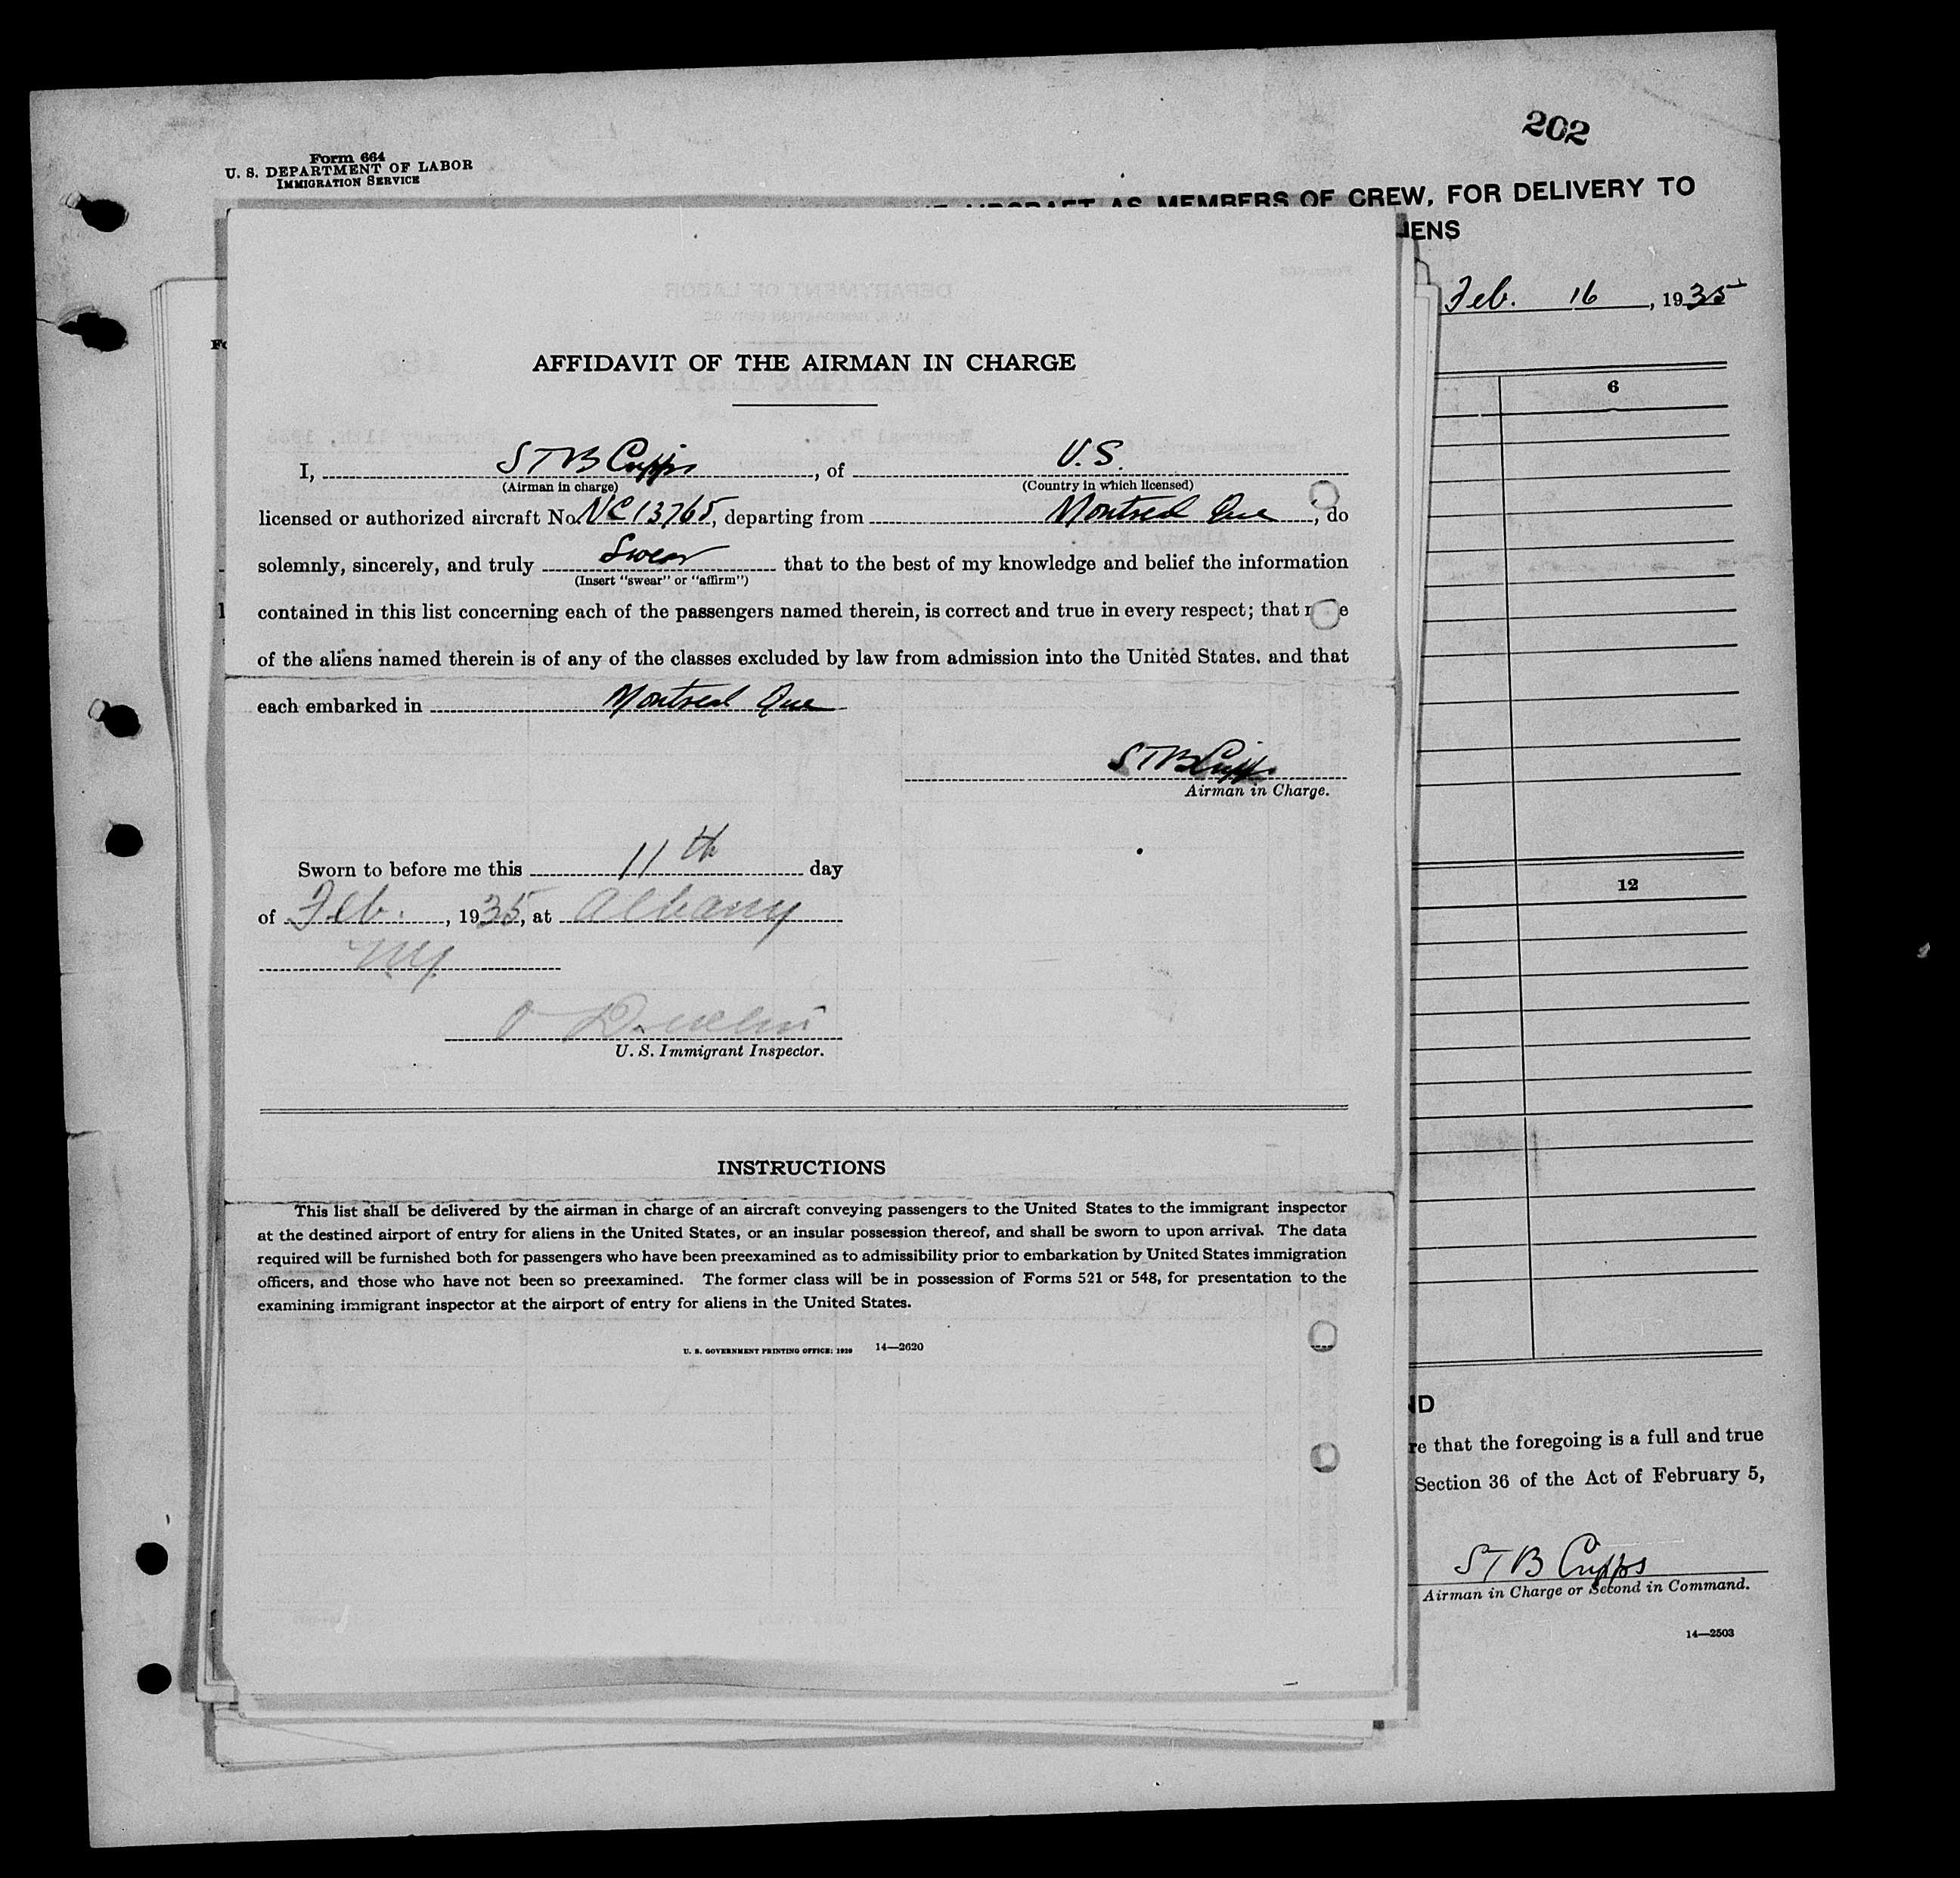 Form 664
U. S. DEPARTMENT OF LABOR
IMMIGRATION SERVICE
202
AIRCRAFT AS MEMBERS OF CREW, FOR DELIVERY TO
IENS
Feb. 16, 1935
6
12
AFFIDAVIT OF THE AIRMAN IN CHARGE
I, S T B Cripps, of U.S.
(Airman in charge) (Country in which licensed)
licensed or authorized aircraft No. NC13765, departing from Montreal Que, do
solemnly, sincerely, and truly Swear that to the best of my knowledge and belief the information
(Insert "swear" or "affirm")
contained in this list concerning each of the passengers named therein, is correct and true in every respect; that n e
of the aliens named therein is of any of the classes excluded by law from admission into the United States. and that
each embarked in Montreal Que
S T B Cripps
Airman in Charge.
Sworn to before me this 11th day
of Feb., 1935, at Albany
NY.
U. S. Immigrant Inspector.
INSTRUCTIONS
This list shall be delivered by the airman in charge of an aircraft conveying passengers to the United States to the immigrant inspector
at the destined airport of entry for aliens in the United States, or an insular possession thereof, and shall be sworn to upon arrival. The data
required will be furnished both for passengers who have been preexamined as to admissibility prior to embarkation by United States immigration
officers, and those who have not been so preexamined. The former class will be in possession of Forms 521 or 548, for presentation to the
examining immigrant inspector at the airport of entry for aliens in the United States.
U. S. GOVERNMENT PRINTING OFFICE: 1929 14—2620
ND
re that the foregoing is a full and true
Section 36 of the Act of February 5,
S T B Cripps
Airman in Charge or Second in Command.
14—2503